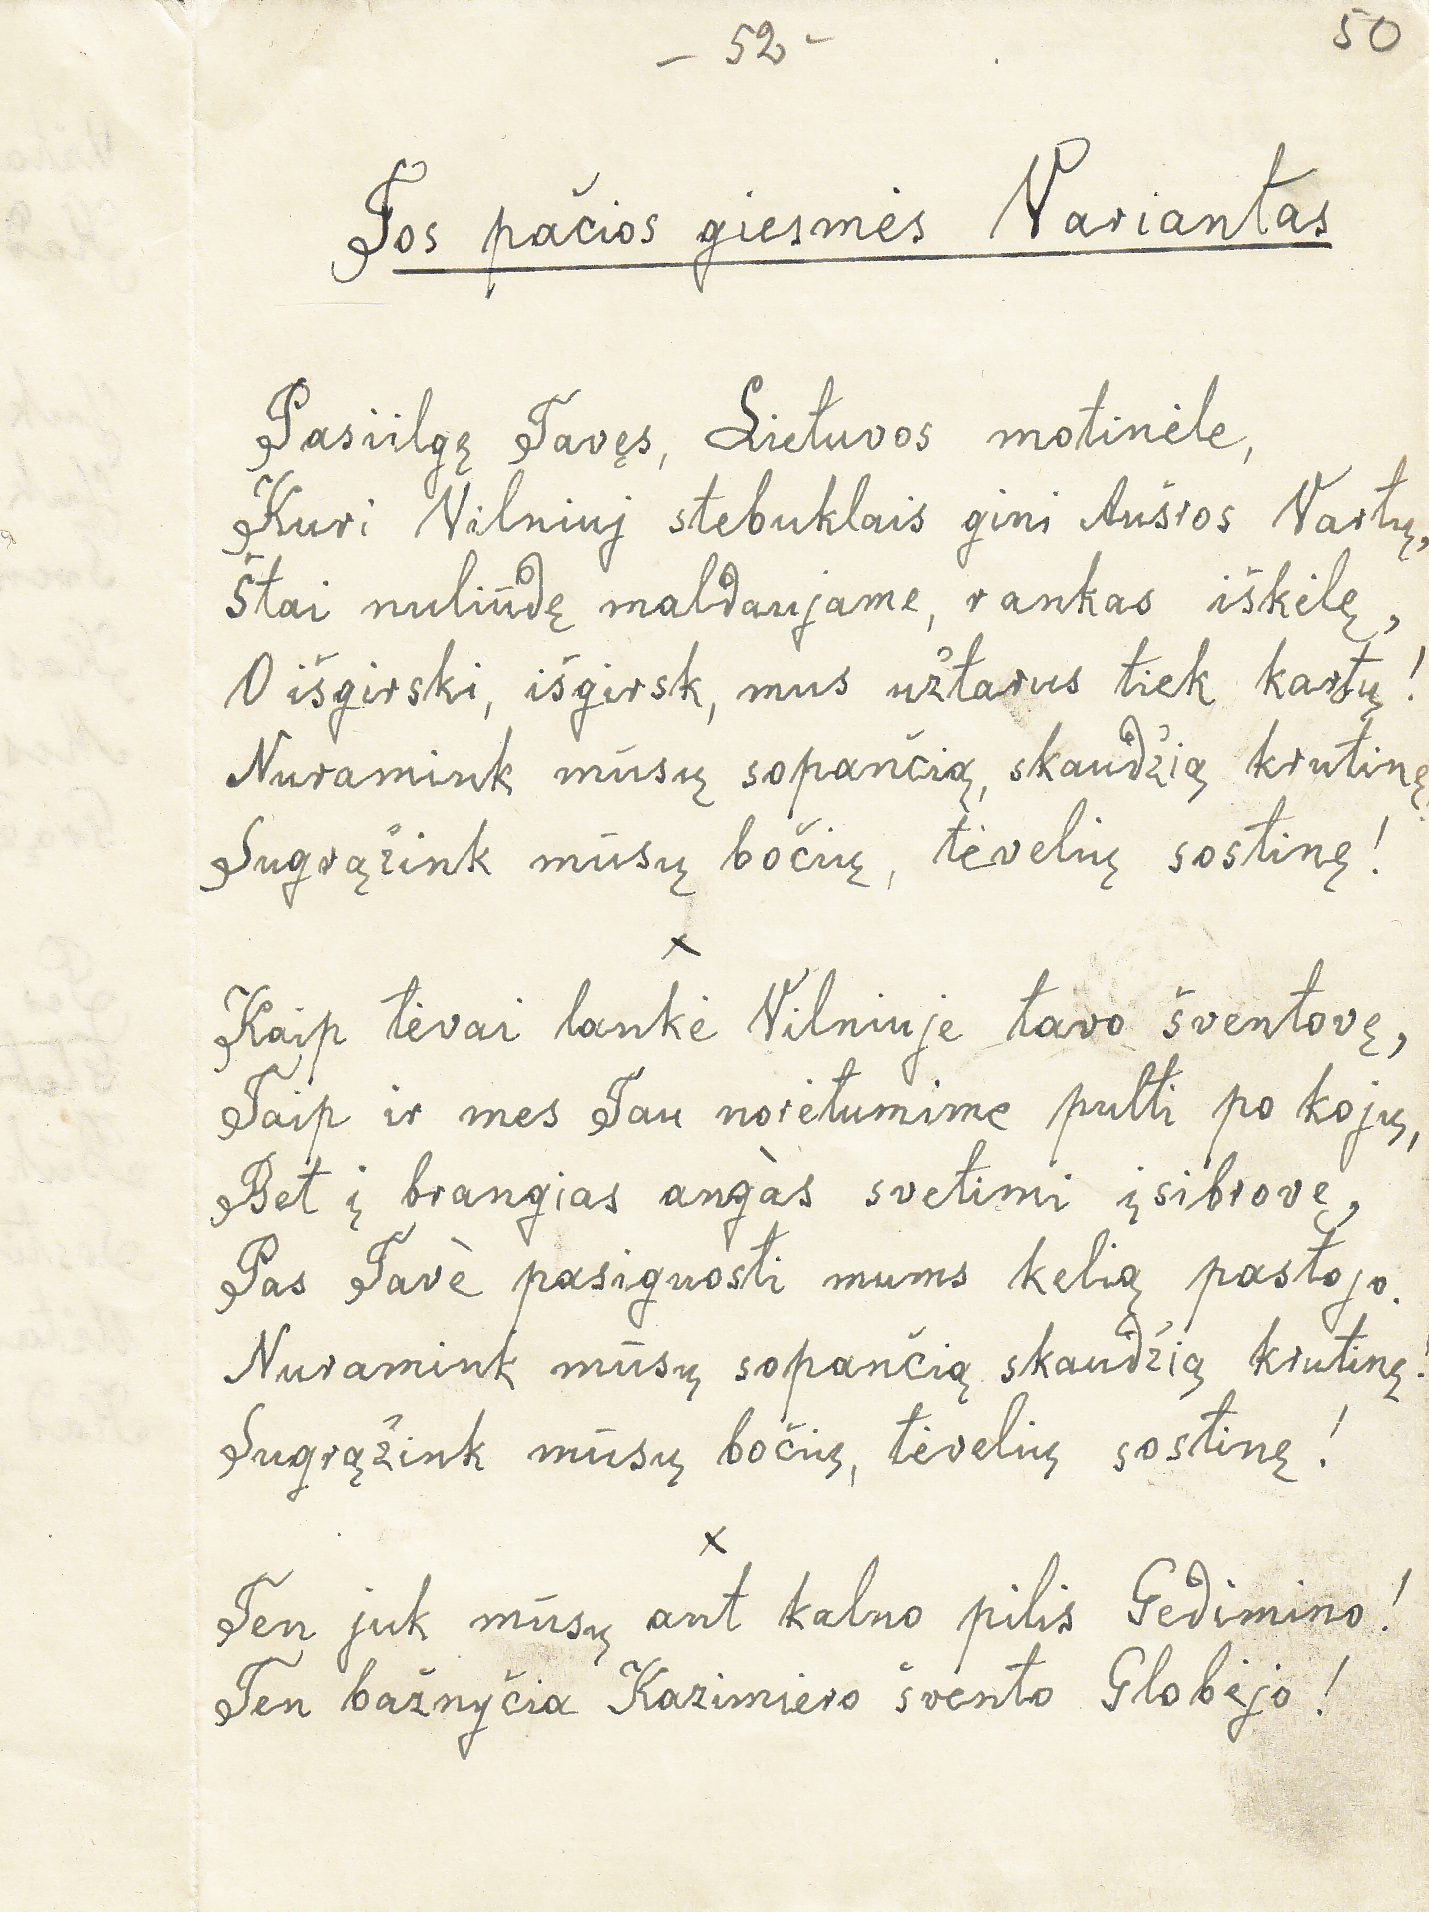 - 52 -
50
Tos pačios giesmės Variantas
Pasiilgę Tavęs, Lietuvos motinėle,
Kuri Vilniuj stebuklais gini Aušros Vartų,
Štai nuliūdę maldaujame, rankas iškėlę,
O išgirski, išgirsk, mus užtarus tiek kartų!
Nuramink mūsų sopančią, skaudžią krutinę,
Sugrąžink mūsų bočių, tėvelių sostinę!
x
Kaip tėvai lankė Vilniuje tavo šventovę,
Taip ir mes Tau norėtumime pulti po kojų,
Bet į brangias angàs svetimi įsibrovę,
Pas Tavè pasiguosti mums kelią pastojo.
Nuramink mūsų sopančią skaudžią krutinę!
Sugrąžink mūsų bočių, tėvelių sostinę!
x
Ten juk mūsų ant kalno pilis Gedimino!
Ten bažnyčia Kazimiero švento Globėjo!